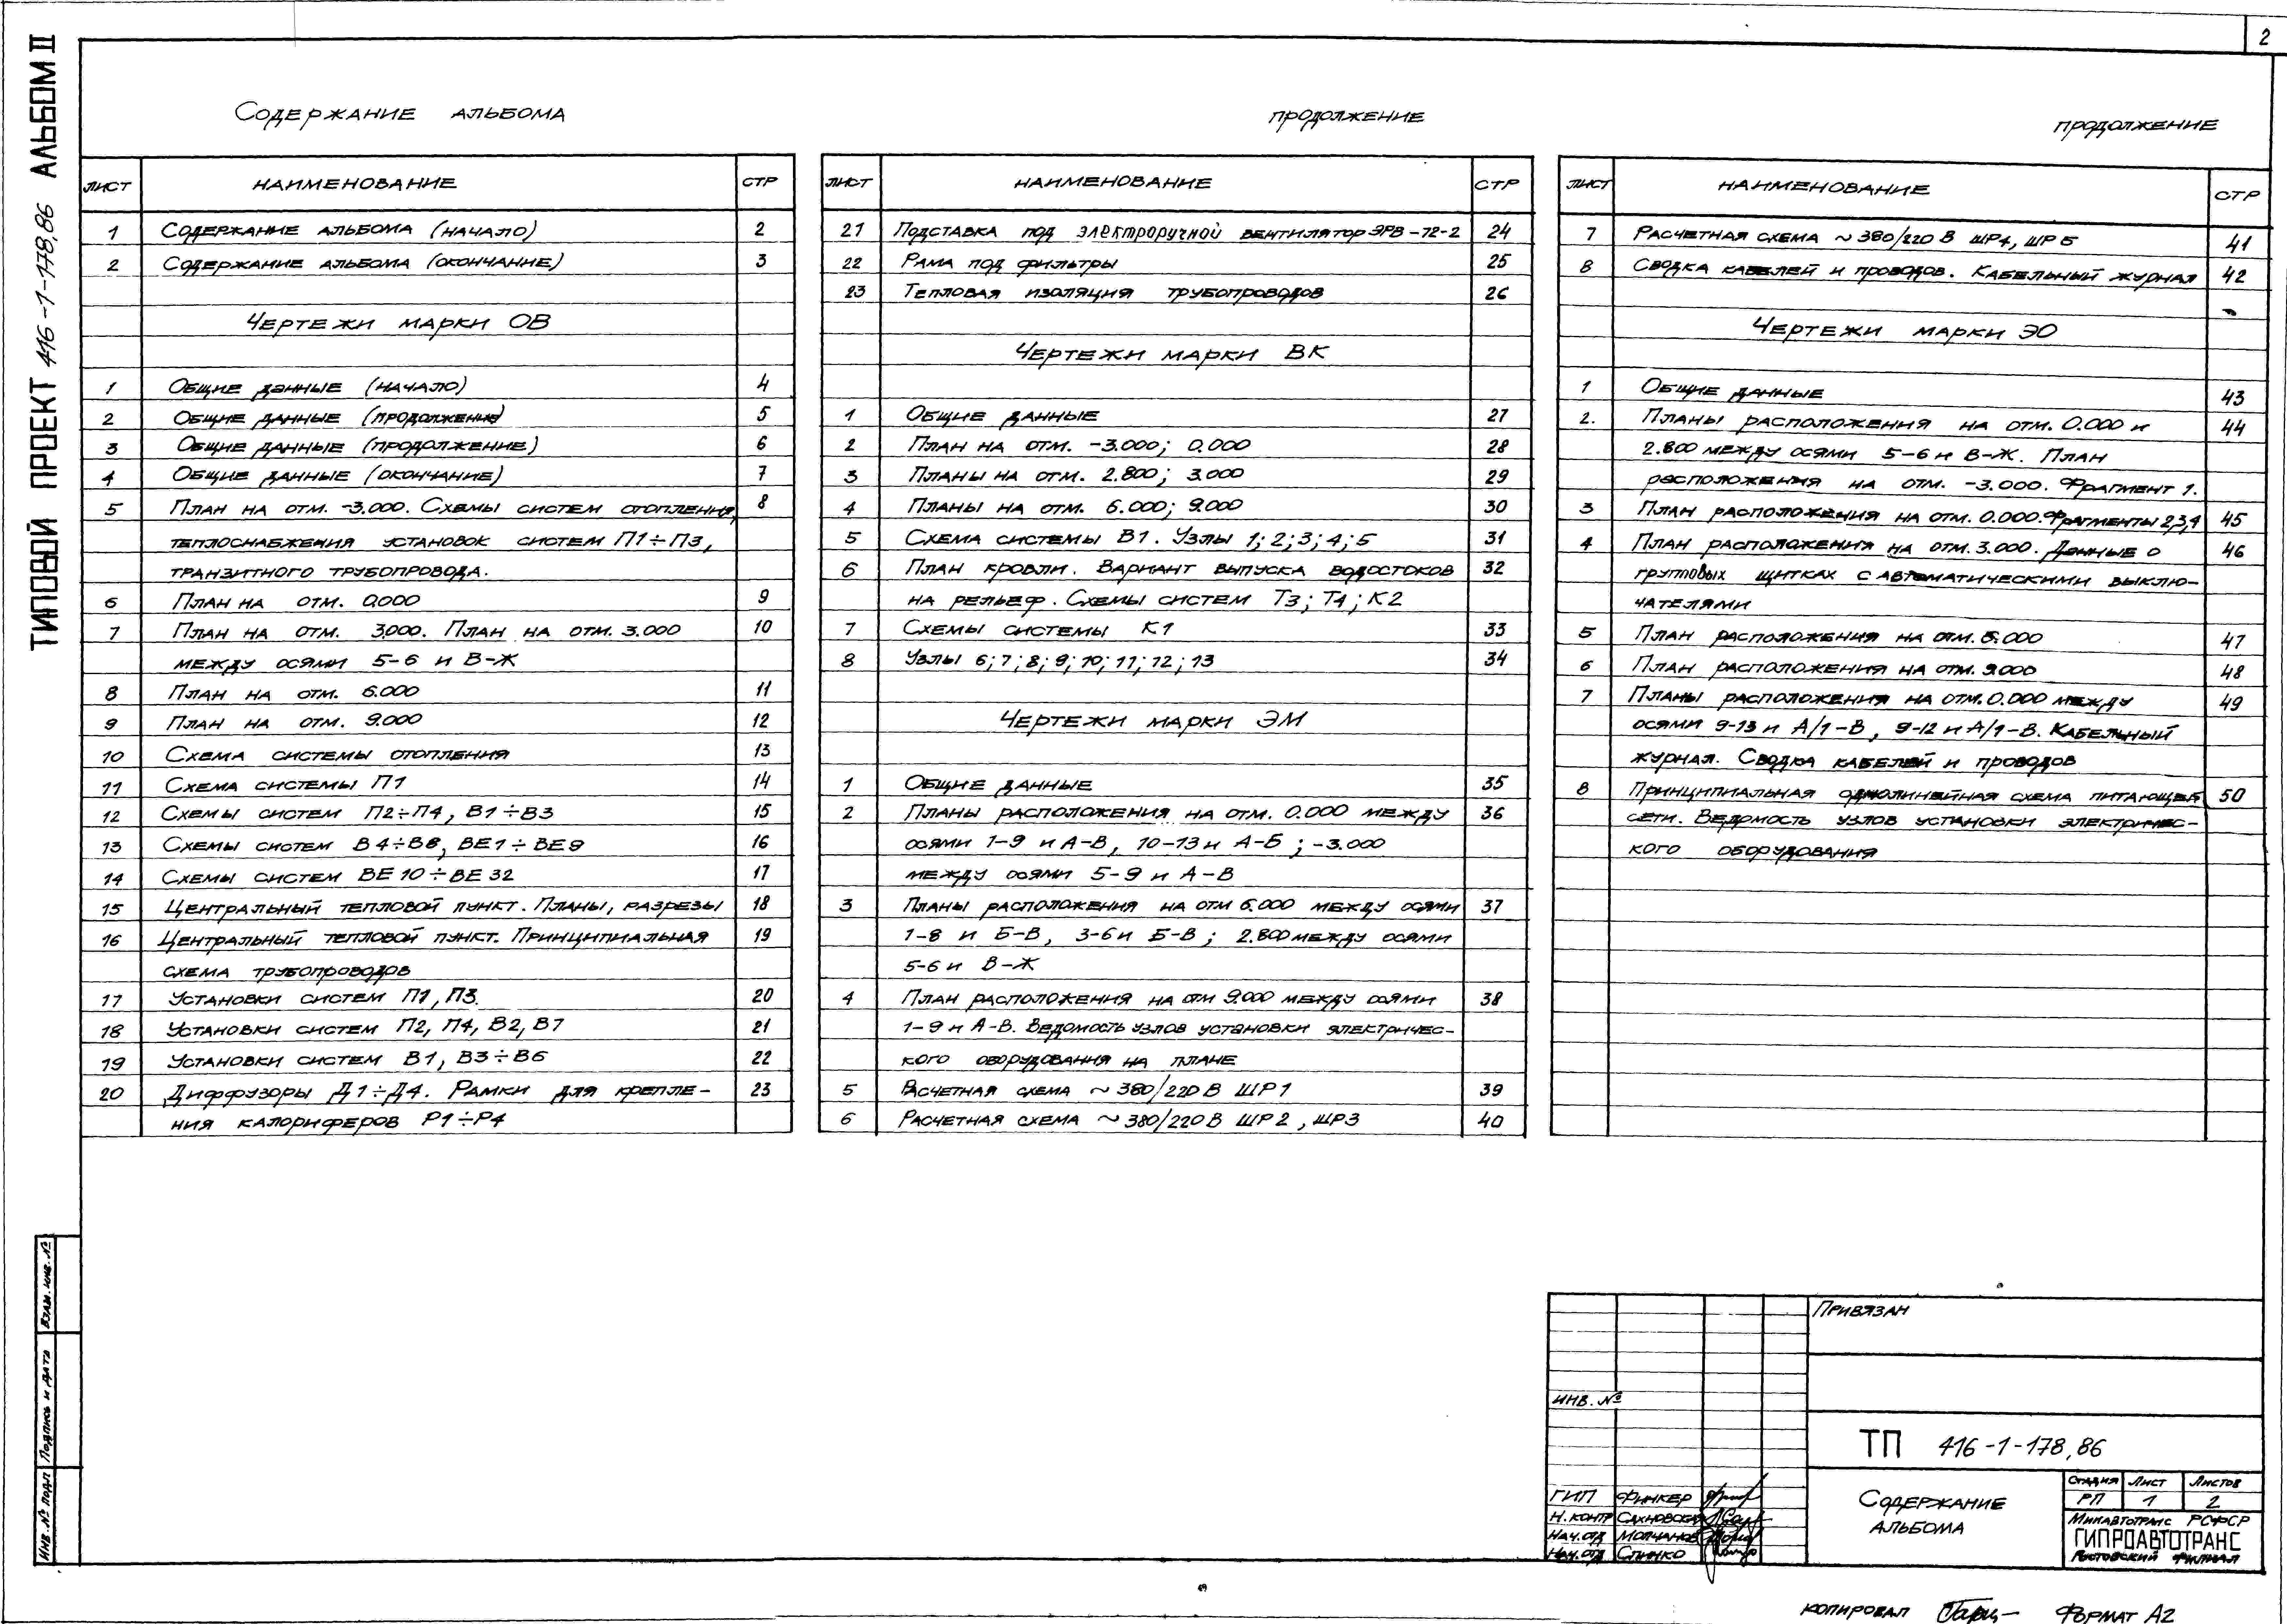 2
ТИПОВОЙ ПРОЕКТ 416-1-178,86 АЛЬБОМ II
СОДЕРЖАНИЕ АЛЬБОМА
ЛИСТ НАИМЕНОВАНИЕ СТР
1 СОДЕРЖАНИЕ АЛЬБОМА (НАЧАЛО) 2
2 СОДЕРЖАНИЕ АЛЬБОМА (ОКОНЧАНИЕ) 3
ЧЕРТЕЖИ МАРКИ ОВ
1 ОБЩИЕ ДАННЫЕ (НАЧАЛО) 4
2 ОБЩИЕ ДАННЫЕ (ПРОДОЛЖЕНИЕ) 5
3 ОБЩИЕ ДАННЫЕ (ПРОДОЛЖЕНИЕ) 6
4 ОБЩИЕ ДАННЫЕ (ОКОНЧАНИЕ) 7
5 ПЛАН НА ОТМ. -3.000. СХЕМЫ СИСТЕМ ОТОПЛЕНИЯ, 8
ТЕПЛОСНАБЖЕНИЯ УСТАНОВОК СИСТЕМ П1÷П3,
ТРАНЗИТНОГО ТРУБОПРОВОДА.
6 ПЛАН НА ОТМ. 0.000 9
7 ПЛАН НА ОТМ. 3.000. ПЛАН НА ОТМ. 3.000 10
МЕЖДУ ОСЯМИ 5-6 И В-Ж
8 ПЛАН НА ОТМ. 6.000 11
9 ПЛАН НА ОТМ. 9.000 12
10 СХЕМА СИСТЕМЫ ОТОПЛЕНИЯ 13
11 СХЕМА СИСТЕМЫ П1 14
12 СХЕМЫ СИСТЕМ П2÷П4, В1÷В3 15
13 СХЕМЫ СИСТЕМ В4÷В8, ВЕ1÷ВЕ9 16
14 СХЕМЫ СИСТЕМ ВЕ10÷ВЕ32 17
15 ЦЕНТРАЛЬНЫЙ ТЕПЛОВОЙ ПУНКТ. ПЛАНЫ, РАЗРЕЗЫ 18
16 ЦЕНТРАЛЬНЫЙ ТЕПЛОВОЙ ПУНКТ. ПРИНЦИПИАЛЬНАЯ 19
СХЕМА ТРУБОПРОВОДОВ
17 УСТАНОВКИ СИСТЕМ П1, П3. 20
18 УСТАНОВКИ СИСТЕМ П2, П4, В2, В7 21
19 УСТАНОВКИ СИСТЕМ В1, В3÷В6 22
20 ДИФФУЗОРЫ Д1÷Д4. РАМКИ ДЛЯ КРЕПЛЕ- 23
НИЯ КАЛОРИФЕРОВ Р1÷Р4
ПРОДОЛЖЕНИЕ
ЛИСТ НАИМЕНОВАНИЕ СТР
21 ПОДСТАВКА ПОД ЭЛЕКТРОРУЧНОЙ ВЕНТИЛЯТОР ЭРВ-72-2 24
22 РАМА ПОД ФИЛЬТРЫ 25
23 ТЕПЛОВАЯ ИЗОЛЯЦИЯ ТРУБОПРОВОДОВ 26
ЧЕРТЕЖИ МАРКИ ВК
1 ОБЩИЕ ДАННЫЕ 27
2 ПЛАН НА ОТМ. -3.000; 0.000 28
3 ПЛАНЫ НА ОТМ. 2.800; 3.000 29
4 ПЛАНЫ НА ОТМ. 6.000; 9.000 30
5 СХЕМА СИСТЕМЫ В1. УЗЛЫ 1; 2; 3; 4; 5 31
6 ПЛАН КРОВЛИ. ВАРИАНТ ВЫПУСКА ВОДОСТОКОВ 32
НА РЕЛЬЕФ. СХЕМЫ СИСТЕМ Т3; Т4; К2
7 СХЕМЫ СИСТЕМЫ К1 33
8 УЗЛЫ 6; 7; 8; 9; 10; 11; 12; 13 34
ЧЕРТЕЖИ МАРКИ ЭМ
1 ОБЩИЕ ДАННЫЕ 35
2 ПЛАНЫ РАСПОЛОЖЕНИЯ НА ОТМ. 0.000 МЕЖДУ 36
ОСЯМИ 1-9 И А-В, 10-13 И А-Б; -3.000
МЕЖДУ ОСЯМИ 5-9 И А-В
3 ПЛАНЫ РАСПОЛОЖЕНИЯ НА ОТМ 6.000 МЕЖДУ ОСЯМИ 37
1-8 И Б-В, 3-6 И Б-В; 2.800 МЕЖДУ ОСЯМИ
5-6 И В-Ж
4 ПЛАН РАСПОЛОЖЕНИЯ НА ОТМ 9.000 МЕЖДУ ОСЯМИ 38
1-9 И А-В. ВЕДОМОСТЬ УЗЛОВ УСТАНОВКИ ЭЛЕКТРИЧЕС-
КОГО ОБОРУДОВАНИЯ НА ПЛАНЕ
5 РАСЧЕТНАЯ СХЕМА ~380/220 В ШР1 39
6 РАСЧЕТНАЯ СХЕМА ~380/220 В ШР2, ШР3 40
ПРОДОЛЖЕНИЕ
ЛИСТ НАИМЕНОВАНИЕ СТР
7 РАСЧЕТНАЯ СХЕМА ~380/220 В ШР4, ШР5 41
8 СВОДКА КАБЕЛЕЙ И ПРОВОДОВ. КАБЕЛЬНЫЙ ЖУРНАЛ 42
ЧЕРТЕЖИ МАРКИ ЭО
1 ОБЩИЕ ДАННЫЕ 43
2. ПЛАНЫ РАСПОЛОЖЕНИЯ НА ОТМ. 0.000 И 44
2.800 МЕЖДУ ОСЯМИ 5-6 И В-Ж. ПЛАН
РАСПОЛОЖЕНИЯ НА ОТМ. -3.000. ФРАГМЕНТ 1.
3 ПЛАН РАСПОЛОЖЕНИЯ НА ОТМ. 0.000. ФРАГМЕНТЫ 2,3,4 45
4 ПЛАН РАСПОЛОЖЕНИЯ НА ОТМ. 3.000. ДАННЫЕ О 46
ГРУППОВЫХ ЩИТКАХ С АВТОМАТИЧЕСКИМИ ВЫКЛЮ-
ЧАТЕЛЯМИ
5 ПЛАН РАСПОЛОЖЕНИЯ НА ОТМ. 6.000 47
6 ПЛАН РАСПОЛОЖЕНИЯ НА ОТМ. 9.000 48
7 ПЛАНЫ РАСПОЛОЖЕНИЯ НА ОТМ. 0.000 МЕЖДУ 49
ОСЯМИ 9-13 И А/1-В, 9-12 И А/1-В. КАБЕЛЬНЫЙ
ЖУРНАЛ. СВОДКА КАБЕЛЕЙ И ПРОВОДОВ
8 ПРИНЦИПИАЛЬНАЯ ОДНОЛИНЕЙНАЯ СХЕМА ПИТАЮЩЕЙ 50
СЕТИ. ВЕДОМОСТЬ УЗЛОВ УСТАНОВКИ ЭЛЕКТРИЧЕС-
КОГО ОБОРУДОВАНИЯ
ИНВ. № ПОДЛ ПОДПИСЬ И ДАТА ВЗАМ. ИНВ. №
ПРИВЯЗАН
ИНВ. №
ТП 416-1-178,86
ГИП ФИНКЕР
Н. КОНТР САХНОВСКАЯ
НАЧ. ОТД МОЛЧАНОВ
НАЧ. ОТД СПИЧКО
СОДЕРЖАНИЕ
АЛЬБОМА
СТАДИЯ ЛИСТ ЛИСТОВ
РП 1 2
МИНАВТОТРАНС РСФСР
ГИПРОАВТОТРАНС
РОСТОВСКИЙ ФИЛИАЛ
КОПИРОВАЛ ФОРМАТ А2